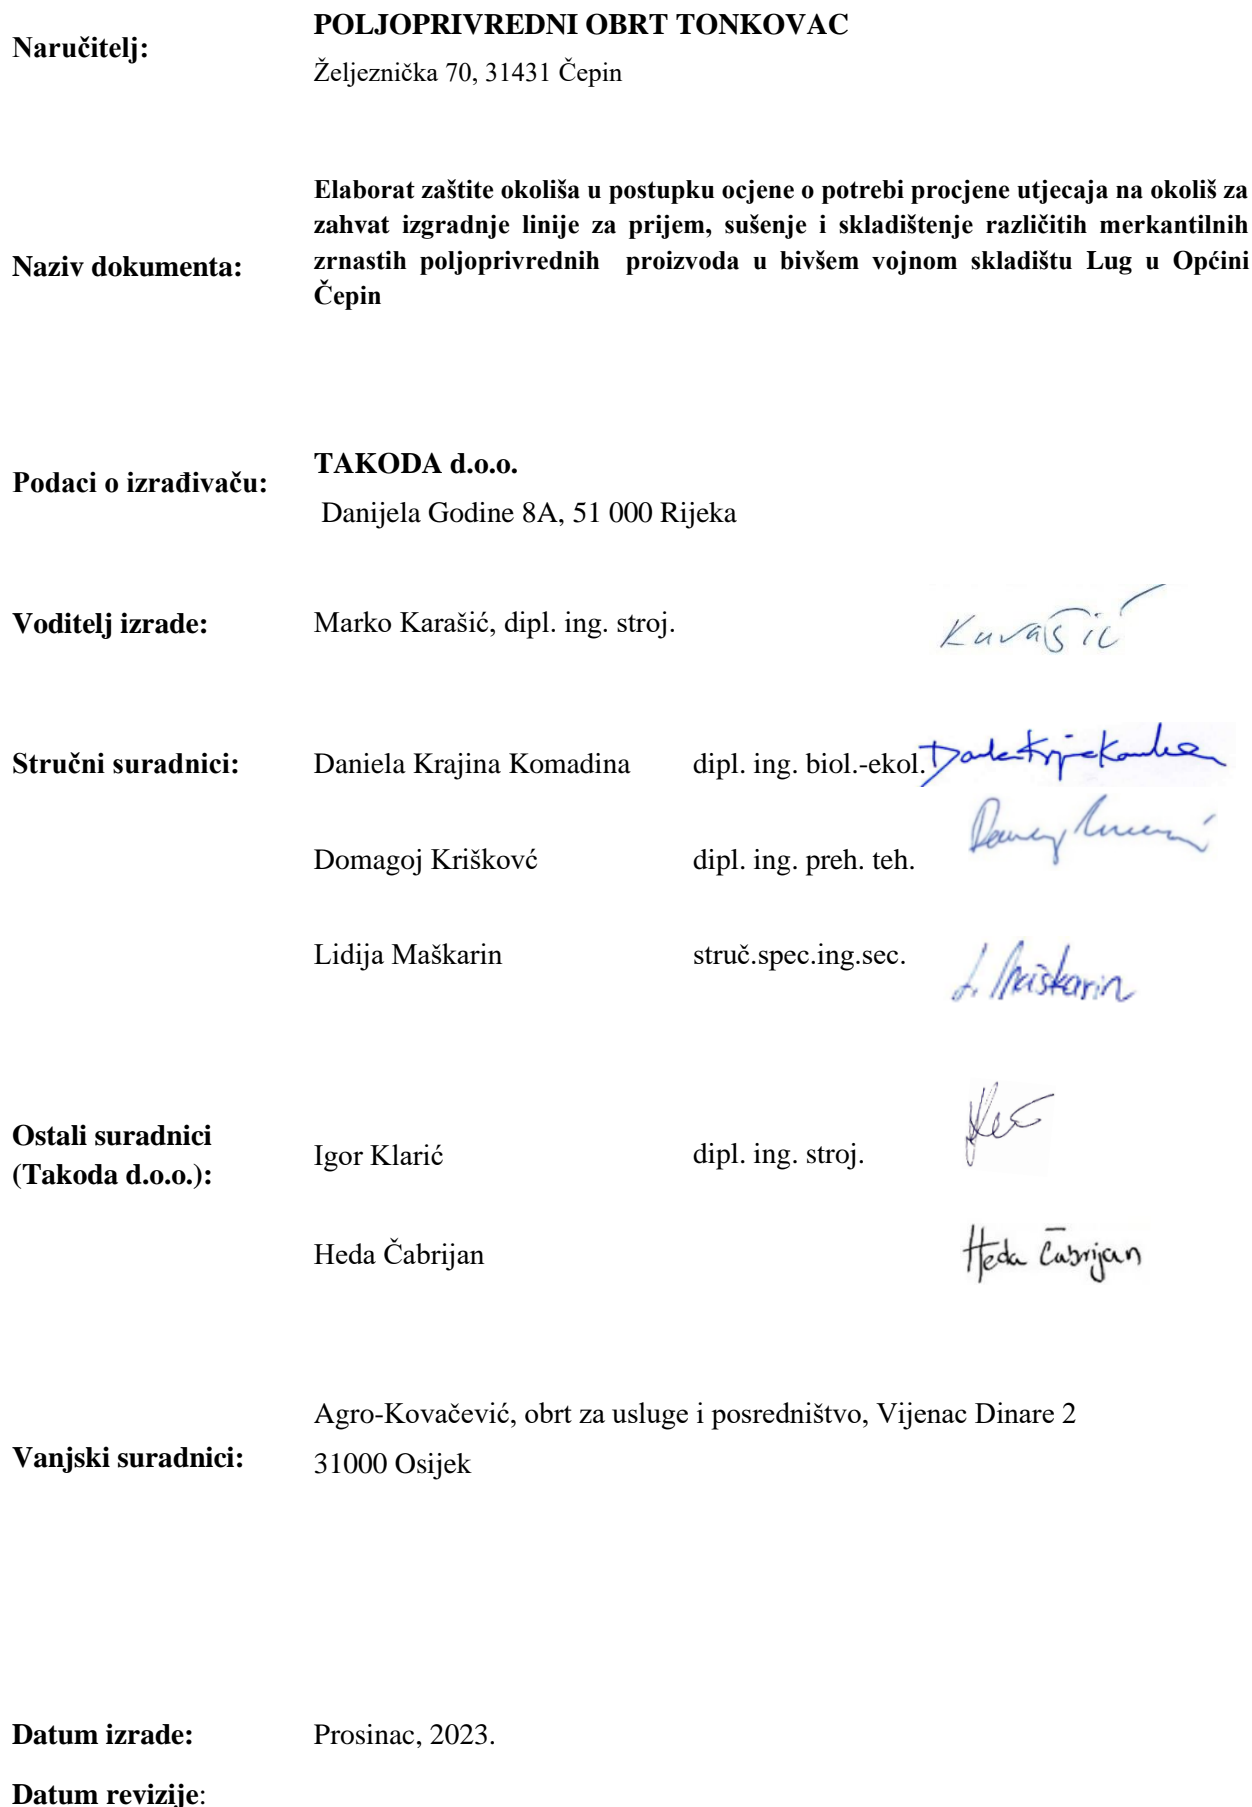 Naručitelj:
POLJOPRIVREDNI OBRT TONKOVAC
Željeznička 70, 31431 Čepin
Naziv dokumenta:
Elaborat zaštite okoliša u postupku ocjene o potrebi procjene utjecaja na okoliš za
zahvat izgradnje linije za prijem, sušenje i skladištenje različitih merkantilnih
zrnastih poljoprivrednih proizvoda u bivšem vojnom skladištu Lug u Općini
Čepin
Podaci o izrađivaču:
TAKODA d.o.o.
Danijela Godine 8A, 51 000 Rijeka
Voditelj izrade: Marko Karašić, dipl. ing. stroj.
Stručni suradnici: Daniela Krajina Komadina dipl. ing. biol.-ekol.
Domagoj Kriškovć dipl. ing. preh. teh.
Lidija Maškarin struč.spec.ing.sec. L. Maškarin
Ostali suradnici
(Takoda d.o.o.):
Igor Klarić dipl. ing. stroj.
Heda Čabrijan Heda Čabrijan
Vanjski suradnici:
Agro-Kovačević, obrt za usluge i posredništvo, Vijenac Dinare 2
31000 Osijek
Datum izrade: Prosinac, 2023.
Datum revizije: